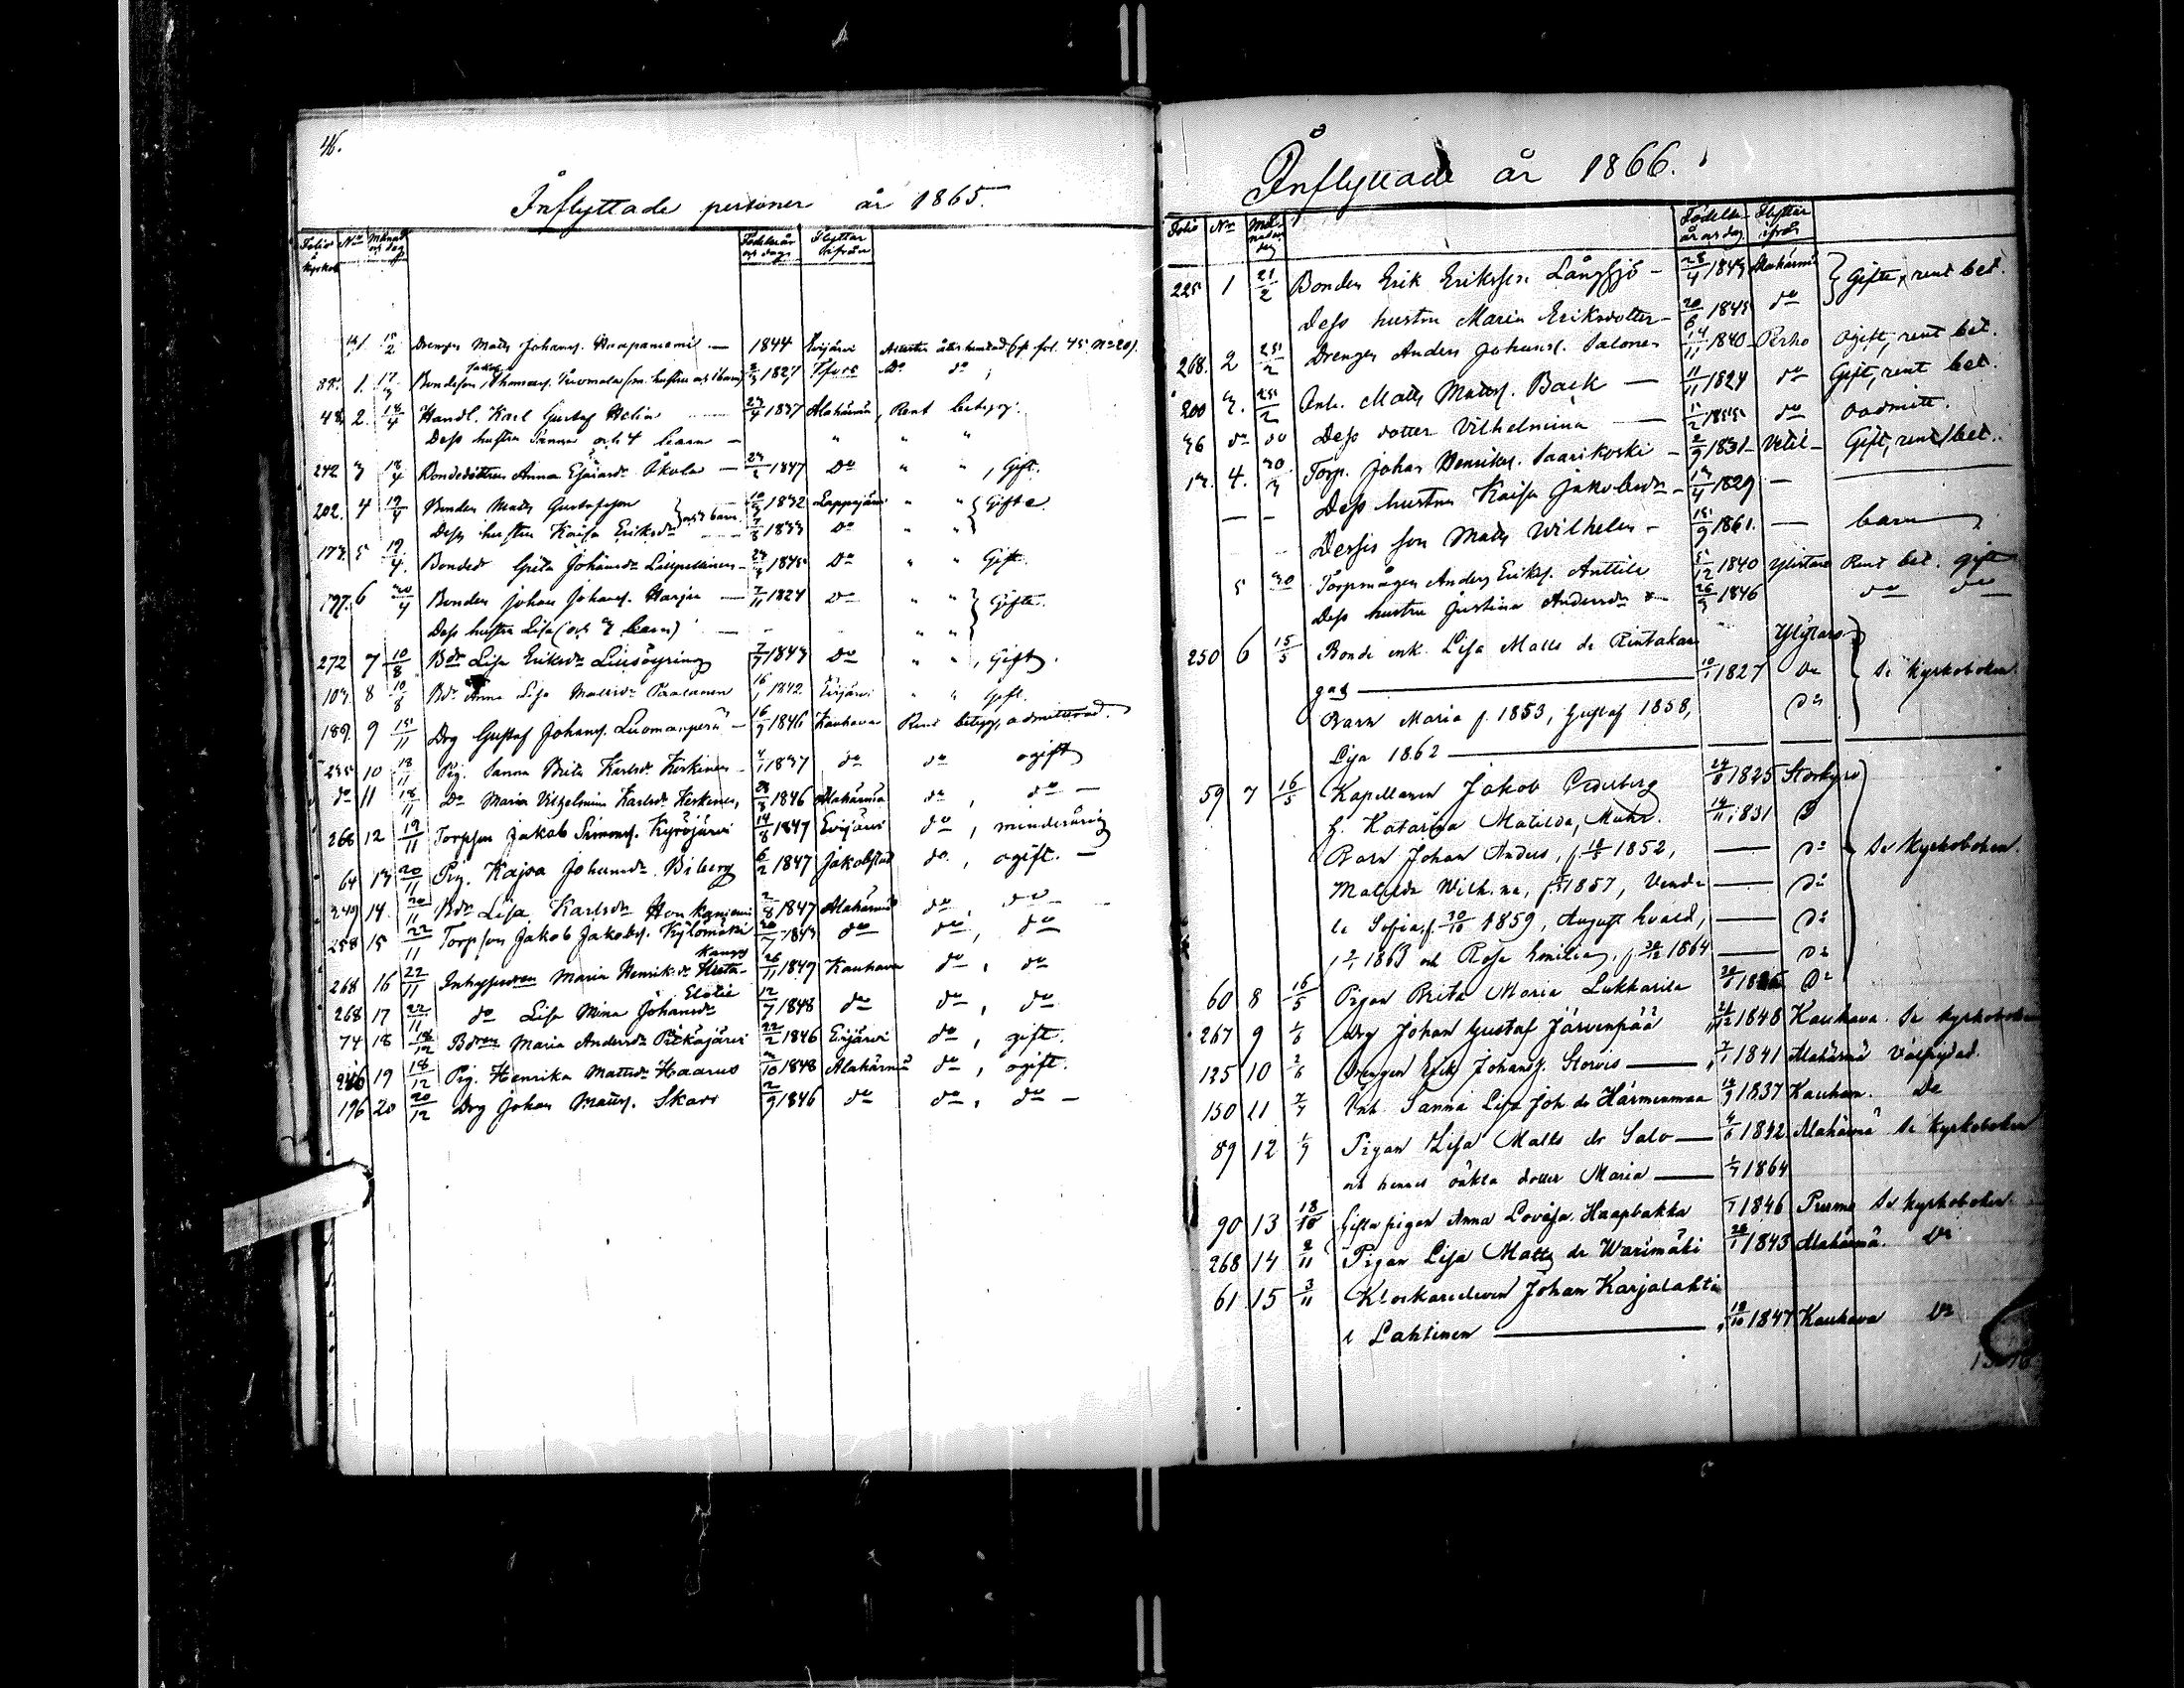 46.
Inflyttade personer år 1865.
Folio i kyrkob. No Månad och dag Födelseår och dag Flyttar ifrån
1 15/2 Drengen Matts Johans. Haapaniemi — 1844 Evijärvi
Jakob
88. 1. 17/3 Bondeson Thomas. Tuomala (m. hustru och barn) 2/3 1827 do
48. 2. 18/4 Handl. Karl Gustaf Helin 23/4 1837 Alahärmä, Rent betyg.
Dess hustru Sanna och 4 barn — " " "
242 3 18/4 Bondedottren Anna Esaiasdr Åkola — 1847 Do " " , Gift.
202. 4 19/4 Bonden Matts Gustafsson } och barn 10/3 1832 Lappajärvi " " } Gifte
Dess hustru Kaisa Eriksdr 1833 Do " "
173. 5 19/4 Bonded Greta Johansdr 1845 Do " " Gift.
197. 6 20/4 Bonden Johan Johans. Harju — 7/11 1824 Do " " } Gifte.
Dess hustru Lisa (och 3 barn) — " "
272 7 10/8 Bdr Lisa Eriksdr 7/7 1843 Do " " , Gift.
107. 8 10/8 Bdr Anna Lisa Mattsdr Paalanen 1842. Evijärvi " " Gift.
189. 9 15/11 Drg Gustaf Johans. Luomanperä — 16/9 1846 Kauhava Rent betyg, admitterad.
235 10 18/11 Pig. Sanna Brita Karlsdr Keskinen — 1837 do do ogift
do 11 18/11 Do Maria Vilhelmina Karlsdr Keskinen, 1846 Alahärmä do , do —
268 12 19/11 Torpson Jakob Simons. Kyröjärvi 14/8 1847 Evijärvi do , minderårig
64 13 20/11 Pig. Kajsa Johansdr. Biberg 6/2 1847 Jakobstad do , ogift. —
249 14. 20/11 Bdr Lisa Karlsdr Honkaniemi 2/8 1847 Alahärmä do , do
258 15 22/11 Torpson Jakob Jakobs. Kylömäki 20/7 1843 do do , do
Kangas
268 16 22/11 Inhyses Maria Henriksdr 26/11 1849 Kauhava do , do
268 17 22/11 do Lisa Mina Johansdr 12/7 1848 do do , do
74 18 18/12 Bdren Maria Andersdr Pitkäjärvi 22/2 1846 Evijärvi do , gift.
246 19 18/12 Pig. Henrika Mattsdr Haarus 1848 Alahärmä do , ogift.
196 20 20/12 Drg Johan Matts. Skarr 2/9 1846 do do , do —
Inflyttade år 1866.
Folio No Månad och dag Födelseår och dag Flyttar ifrån
225 1 21/2 Bonden Erik Eriksson Långsjö — 28/4 1843 Alahärmä } Gifte, rent bet.
Dess hustru Maria Eriksdotter — 20/6 1845 do
268. 2 25/2 Drengen Anders Johans. Salonen 14/11 1840 Perho Ogift, rent bet.
200 3. 25/2 Inh. Matts Matts. Back — 11/11 1824 do Gift, rent bet.
36 do do Dess dotter Vilhelmina — 5/2 1855 do oadmitt.
13. 4. 30/3 Torp. Johan Henriks. Saarikoski — 2/9 1831 Vetil — Gift, rent bet..
— — Dess hustru Kaisa Jakobsdr — 13/4 1829 — —
Dessas son Matts Wilhelm — 15/9 1861. — barn
5 30 Torpmågen Anders Eriks. Anttila 5/12 1840 Ylistaro Rent bet. gift
Dess hustru Justina Andersdr 26/3 1846 do do
250 6 15/5 Bonde enk. Lisa Matts dr Rintakan Ylistaro
gas — 10/1 1827 do } Se kyrkoboken.
Barn Maria f. 1853, Gustaf 1858, do
Lisa 1862 —
59 7 16/5 Kapellanen Jakob Cederberg 24/8 1825 Storkyro
h. Katarina Matilda, Muhr. 14/11 1831 D
Barn Johan Anders, f. 1852, — do } Se Kyrkoboken.
Matilda Wilh.na, f. 1857, Vende — do
la Sofia, f. 30/10 1859, August Evald, — do
f 1863 och Rosa Emilia, f. 1864 — do
60 8 16/5 Pigan Brita Maria Lukkarila do
267 9 1/6 Drg Johan Gustaf Järvenpää 1848 Kauhava. Se kyrkoboken
125 10 2/6 Drengen Erik Johans. Storvis — 7/1 1841 Alahärmä Välfrejdad.
150 11 7/7 Inh. Sanna Lisa Joh. dr Härmenmaa 1837 Kauhava. Do
89 12 1/9 Pigan Lisa Matts dr Salo — 4/6 1842 Alahärmä Se Kyrkoboken
och hennes oäkta dotter Maria — 1864
90 13 18/10 Gifta pigan Anna Lovisa Haapbakka 1846 Purmo Se kyrkoboken
268 14 2/11 Pigan Lisa Matts dr Warimäki 28/1 1843 Alahärmä. Do
61 15 3/11 Klockareeleven Johan Karjalahti
l Lahtinen — 18/10 1847 Kauhava Do